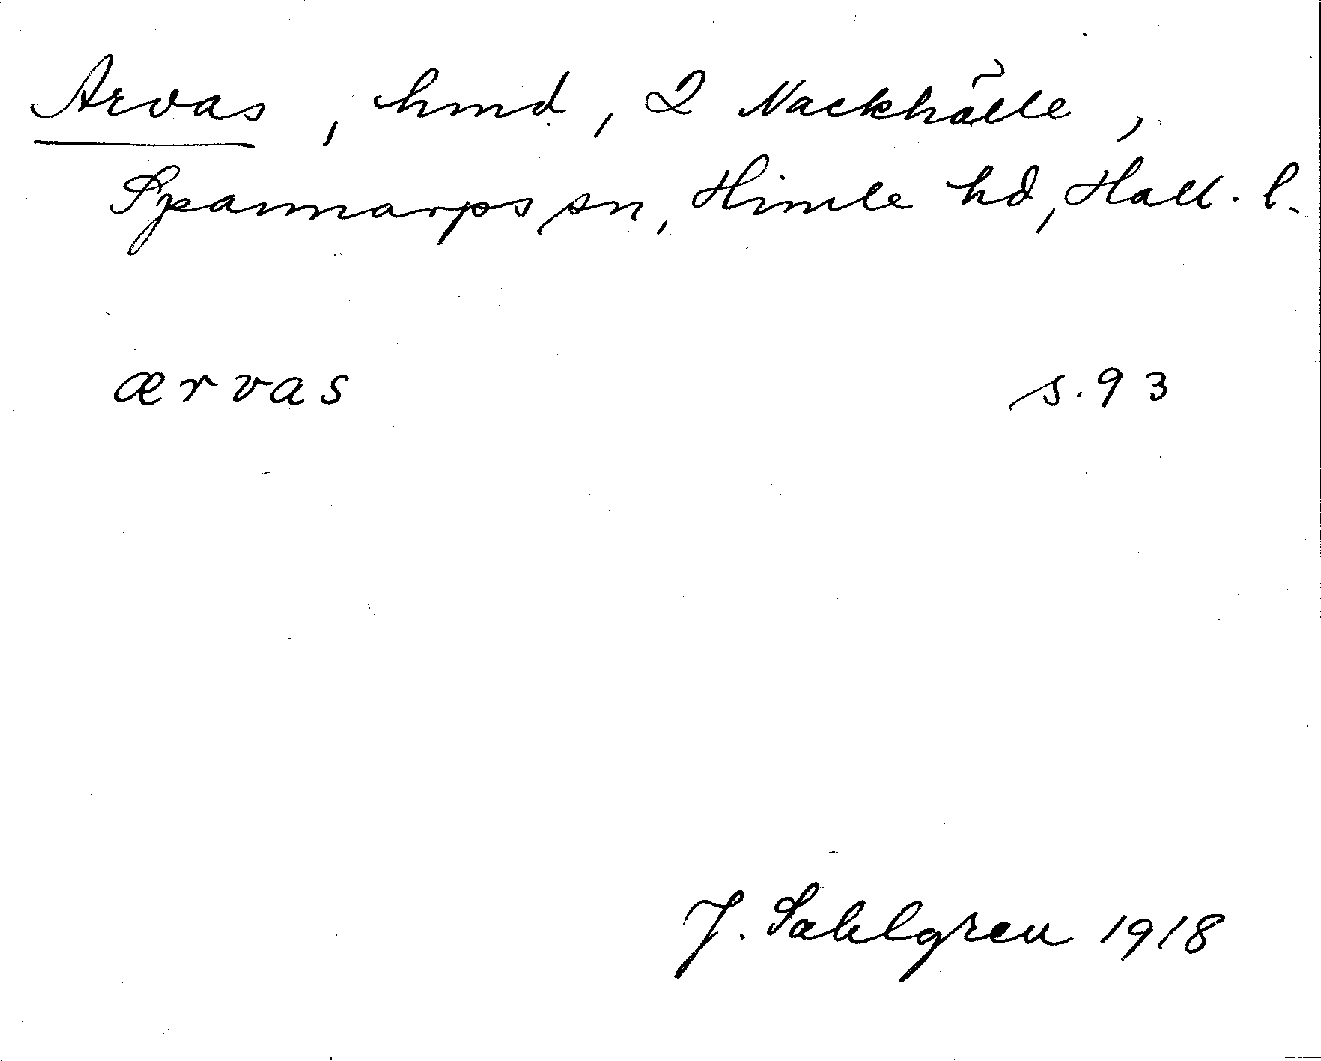 Arvas, hmd, 2 Nackhälle,
Spannarps sn, Himle hd, Hall. l.
ærvas s. 93
J. Sahlgren 1918